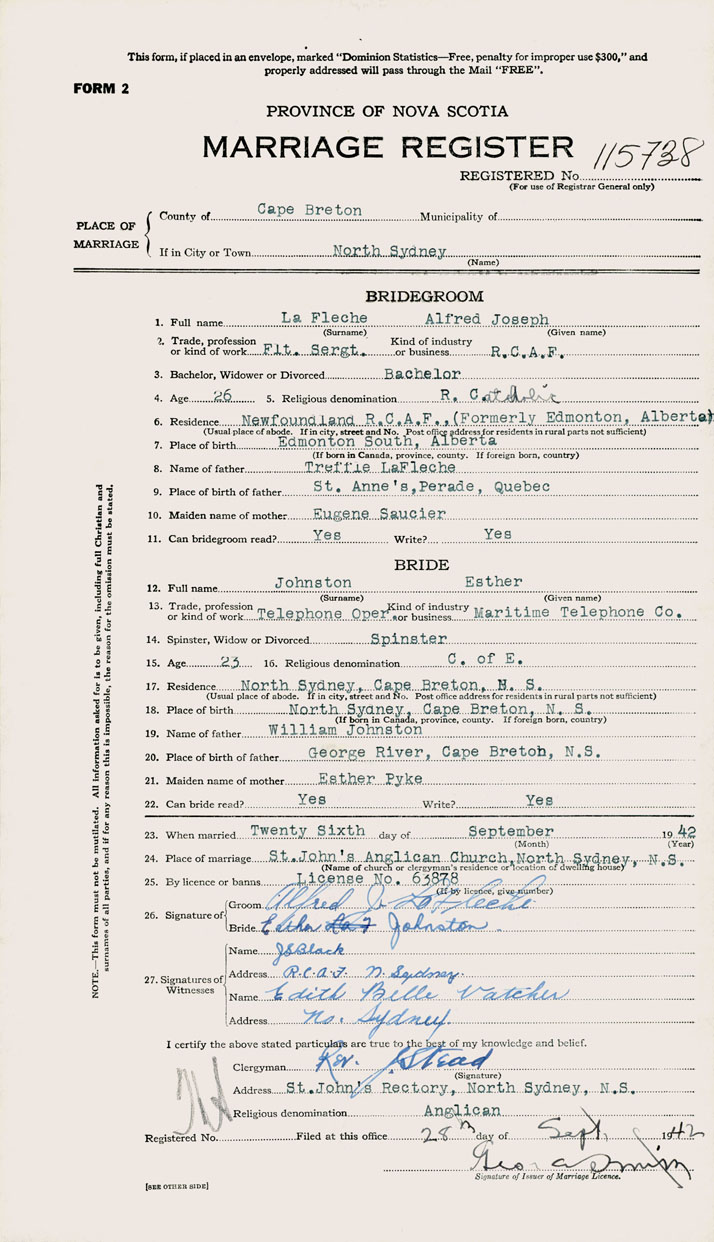 This form, if placed in an envelope, marked "Dominion Statistics—Free, penalty for improper use $300," and
properly addressed will pass through the Mail "FREE".
FORM 2
PROVINCE OF NOVA SCOTIA
MARRIAGE REGISTER
115738
REGISTERED No.
(For use of Registrar General only)
PLACE OF MARRIAGE
County of Cape Breton Municipality of
If in City or Town North Sydney
(Name)
BRIDEGROOM
1. Full name La Fleche Alfred Joseph
(Surname) (Given name)
2. Trade, profession or kind of work Flt. Sergt. Kind of industry or business R.C.A.F.
3. Bachelor, Widower or Divorced Bachelor
4. Age 26 5. Religious denomination R. Catholic
6. Residence Newfoundland R.C.A.F., (Formerly Edmonton, Alberta)
(Usual place of abode. If in city, street and No. Post office address for residents in rural parts not sufficient)
7. Place of birth Edmonton South, Alberta
(If born in Canada, province, county. If foreign born, country)
8. Name of father Treffie LaFleche
9. Place of birth of father St. Anne's,Perade, Quebec
10. Maiden name of mother Eugene Saucier
11. Can bridegroom read? Yes Write? Yes
BRIDE
12. Full name Johnston Esther
(Surname) (Given name)
13. Trade, profession or kind of work Telephone Oper. Kind of industry or business Maritime Telephone Co.
14. Spinster, Widow or Divorced Spinster
15. Age 23 16. Religious denomination C. of E.
17. Residence North Sydney, Cape Breton, N. S.
(Usual place of abode. If in city, street and No. Post office address for residents in rural parts not sufficient)
18. Place of birth North Sydney, Cape Breton, N. S.
(If born in Canada, province, county. If foreign born, country)
19. Name of father William Johnston
20. Place of birth of father George River, Cape Breton, N.S.
21. Maiden name of mother Esther Pyke
22. Can bride read? Yes Write? Yes
23. When married Twenty Sixth day of September 1942
(Month) (Year)
24. Place of marriage St.John's Anglican Church,North Sydney, N.S.
(Name of church or clergyman's residence or location of dwelling house)
25. By licence or banns License No. 63878
(If by licence, give number)
26. Signature of
Groom Alfred J. LaFleche
Bride Esther La F Johnston
27. Signatures of Witnesses
Name JSBlack
Address R.C.A.F. N. Sydney.
Name Edith Belle Vatcher
Address No. Sydney.
I certify the above stated particulars are true to the best of my knowledge and belief.
Clergyman Rev. J Stead
(Signature)
Address St.John's Rectory, North Sydney, N.S.
Religious denomination Anglican
Registered No. Filed at this office 28th day of Sept 1942
Geo
Signature of Issuer of Marriage Licence.
[SEE OTHER SIDE]
NOTE.—This form must not be mutilated. All information asked for is to be given, including full Christian and
surnames of all parties, and if for any reason this is impossible, the reason for the omission must be stated.